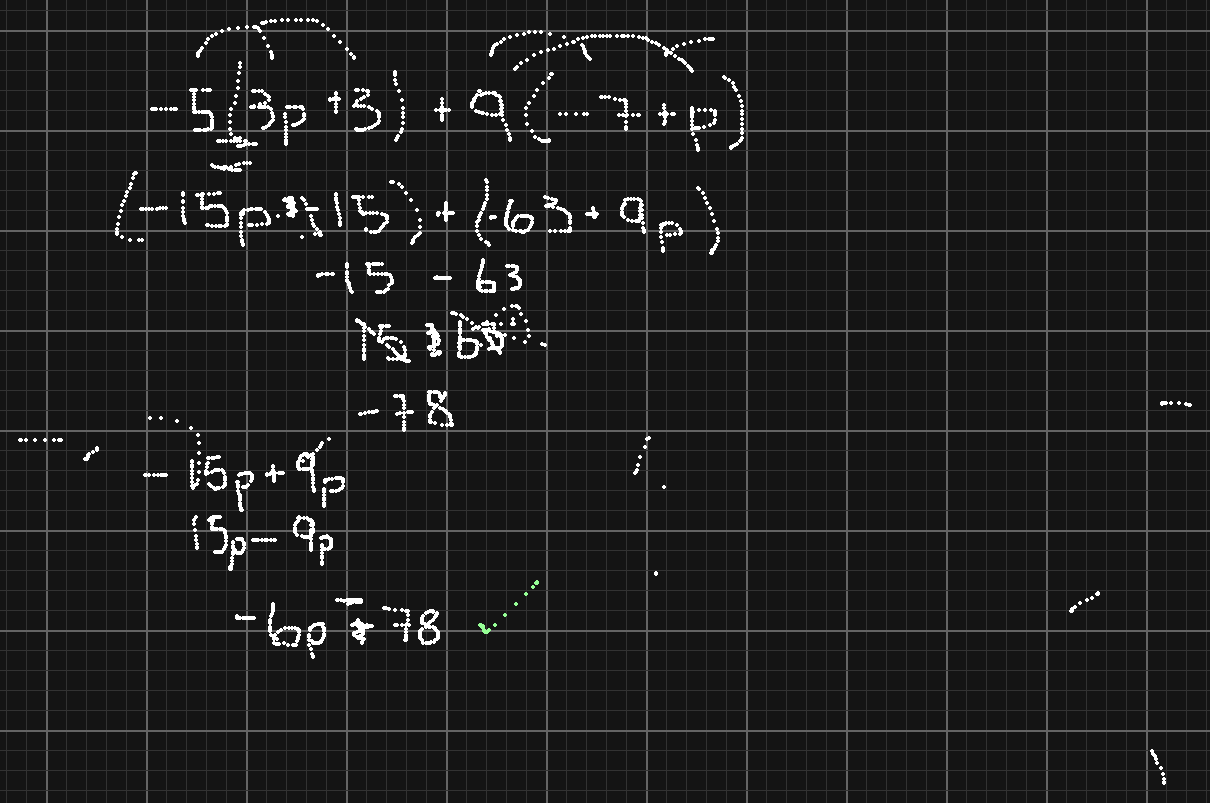 -5(3p+3) + 9(-7+p)
(-15p - 15) + (-63 + 9p)
-15 - 63
-78
-15p + 9p
15p - 9p
-6p - 78